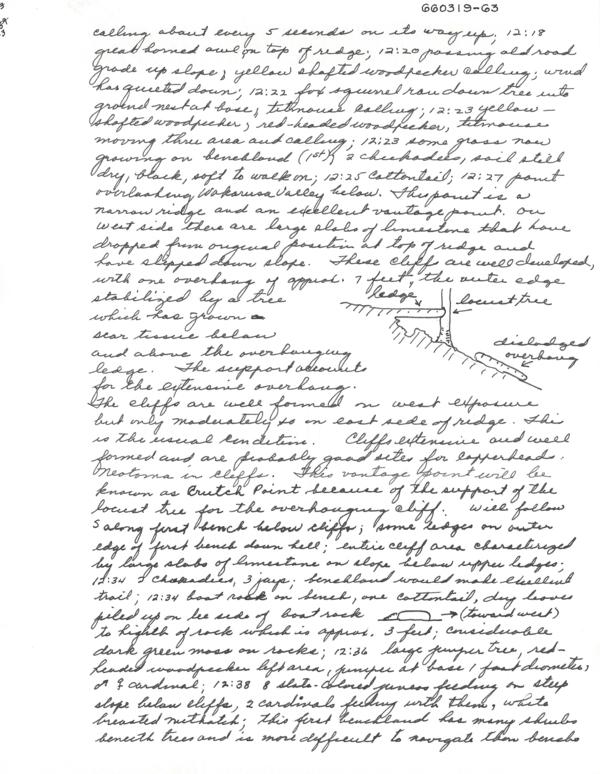 660319-63
calling about every 5 seconds on its way up; 12:18
great horned owl on top of ridge; 12:20 passing old road
grade up slope, yellow shafted woodpecker calling; wind
has quieted down; 12:22 fox squirrel ran down tree into
ground nest at base; titmouse calling; 12:23 yellow-
shafted woodpecker, red-headed woodpecker, titmouse
moving thru area and calling; 12:23 some grass now
growing on benchland (1st), 2 chickadees, soil still
dry, black, soft to walk on; 12:25 cottontail; 12:27 point
overlooking Wakarusa Valley below. This point is a
narrow ridge and an excellent vantage point. On
west side there are large slabs of limestone that have
dropped from original position at top of ridge and
have slipped down slope. These cliffs are well developed,
with one overhang of approx. 7 feet, the outer edge
stabilized by a tree
which has grown a
scar tissue below
and above the overhanging
ledge. The support accounts
for the extensive overhang.
ledge
locust tree
dislodged
overhang
The cliffs are well formed on west exposure
but only moderately so on east side of ridge. This
is the usual condition. Cliffs extensive and well
formed and are probably good sites for copperheads.
Neotoma in cliffs. This vantage point will be
known as Crutch Point because of the support of the
locust tree for the overhanging cliff. Will follow
S along first bench below cliffs; some ledges on outer
edge of first bench down hill; entire cliff area characterized
by large slabs of limestone on slope below upper ledges;
12:34 2 chickadees, 3 jays; benchland would make excellent
trail; 12:34 boat rock on bench, one cottontail, dry leaves
piled up on lee side of boat rock → (toward west)
to highth of rock which is approx. 3 feet; considerable
dark green moss on rocks; 12:36 large juniper tree, red-
headed woodpecker left area, juniper at base 1 foot diameter,
♂ ♀ cardinal; 12:38 8 slate-colored juncos feeding on steep
slope below cliffs, 2 cardinals feeding with them, white
breasted nuthatch; this first benchland has many shrubs
beneath trees and is more difficult to navigate than benchs